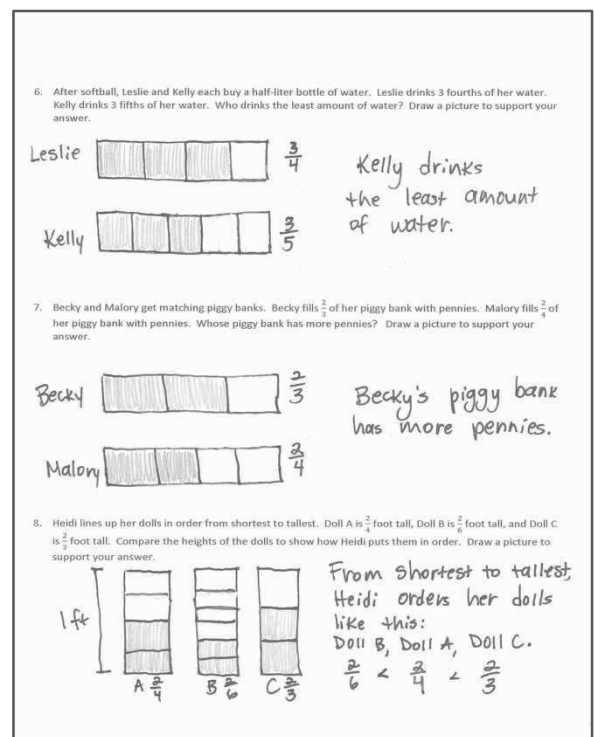 6. After softball, Leslie and Kelly each buy a half-liter bottle of water. Leslie drinks 3 fourths of her water.
Kelly drinks 3 fifths of her water. Who drinks the least amount of water? Draw a picture to support your
answer.
Leslie 3/4
Kelly 3/5
Kelly drinks
the least amount
of water.
7. Becky and Malory get matching piggy banks. Becky fills 2/3 of her piggy bank with pennies. Malory fills 2/4 of
her piggy bank with pennies. Whose piggy bank has more pennies? Draw a picture to support your
answer.
Becky 2/3
Malory 2/4
Becky's piggy bank
has more pennies.
8. Heidi lines up her dolls in order from shortest to tallest. Doll A is 2/4 foot tall, Doll B is 2/6 foot tall, and Doll C
is 2/3 foot tall. Compare the heights of the dolls to show how Heidi puts them in order. Draw a picture to
support your answer.
1 ft
A 2/4 B 2/6 C 2/3
From shortest to tallest,
Heidi orders her dolls
like this:
Doll B, Doll A, Doll C.
2/6 < 2/4 < 2/3